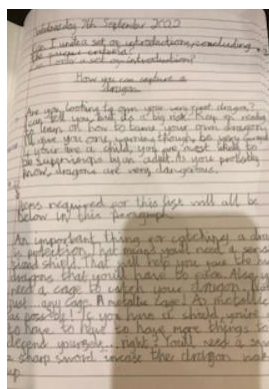 Wednesday 7th September 2022
Can I write a set of introductions, including
the purpose
Can I write a set of introductions?
How you can capture a
dragon
Are you looking to own your very first dragon?
I can tell you, but it's a big risk. Keep on reading
to learn on how to tame your own dragon.
I'll give you one warning though, be very careful
if your are a child, you are most likely to
be supervised by an adult. As you probably
know, dragons are very dangerous.
Items required for this first will all be
below in this paragraph
An important thing for catching a dragon
is protection, that means you'll need a
sized shield that will help you face the
dragons that you'll have to face. Also you
need a cage to catch your dragon. Not
just any cage. A metallic cage! As metallic
as possible! If you have a shield, you're
to have to have to have more things to
defend yourself, right? You'll need a
a sharp sword incase the dragon wakes
up.